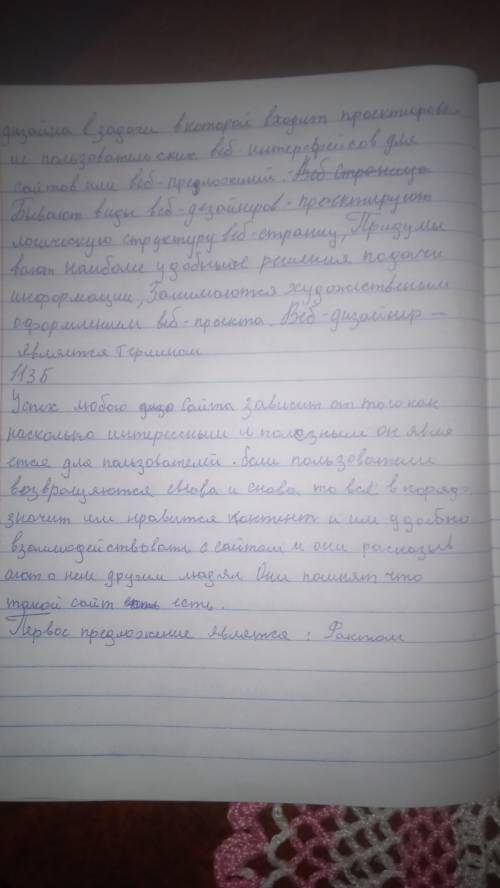 дизайна в задачи в которой входит проектирова
ие пользовательских веб-интерфейсов для
сайтов или веб-предложений. Веб страница
Бывают виды веб-дезайнеров - проектируют
логическую структуру веб-страниц, Придумы
вают наиболее удобные решения подачи
информации, Занимаются художественным
оформлением веб-проекта. Веб-дизайнер -
является термином
Успех любого диза сайта зависит от того как
насколько интересным и полезным он явля
ется для пользователей. Если пользователи
возвращяются снова и снова то всё в поряд-
значит им нравится контент и им удобно
взаимодействовать с сайтом и они рассказыв
ают о нем другим людям Они помнят что
такой сайт есть.
Первое предложение является: Фактом